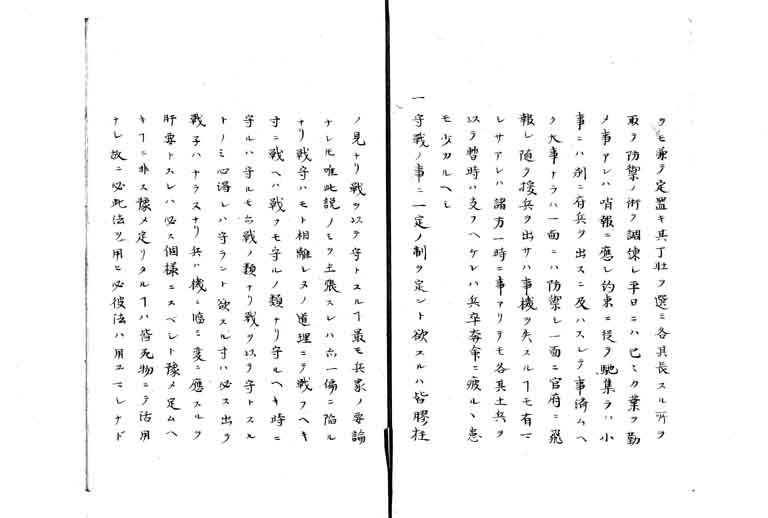 ヲモ兼テ定置キ其丁壮ヲ選ミ各其長スル所ヲ
取ラ防禦ノ術ヲ調練シ平日ニハ己ミカ業ヲ勤
メ事アレハ哨報ニ應シ約束ニ從ヲ馳集ラハ小
事ニハ別ニ府兵ヲ出スニ及ハスレテ事済ムヘ
ク大事ナラハ一面ニハ防禦シ一面ニ官府ニ飛
報シ随ヲ接兵ヲ出サハ事機ヲ失スルヿモ有ニ
レサアレハ諸方一時ニ事アリテモ各其土兵ヲ
以ラ暫時ハ支ヲヘケレハ兵卒奔命ニ疲ルヽ患
モ少カルヘシ
一守戦ノ事ニ一定ノ制ヲ定ント欲スルハ皆膠柱
ノ見ナリ戦ヲ以テ守トスルヿ最モ兵家ノ要論
ナレ𪜈唯此説ノミヲ主張スレハ亦一偏ニ陥ル
ナリ戦守ハモト相離レヌノ道理ニテ戦フヘキ
寸ニ戦ヘハ戦ヲモ守ルノ類ナリ守ルヘキ時ニ
守ルハ守ルモ亦戦ノ類ナリ戦ヲ以ラ守トスル
トノミ心得レハ守ラント欲スル寸ハ必ス出ラ
戦子ハナラスナリ兵ハ機ニ臨ミ変ニ應スルヲ
肝要トスレハ必ス個様ニスベシト豫メ定ムヘ
キヿニ非ス豫メ定リタルヿハ皆死物ニテ活用
ナレ故ニ必此法ヲ用ヒ必彼法ハ用ユマレナド